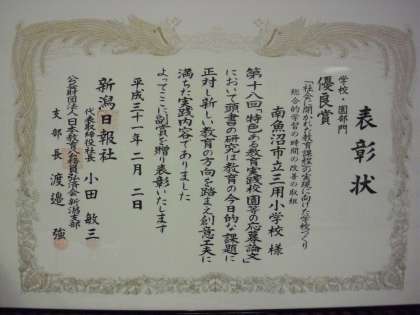 表彰状
学校・園部門
優良賞
「社会に開かれた教育課程の実現に向けた学校づくり
総合的学習の時間の改善の取組
南魚沼市立三用小学校 様
第十八回「特色ある教育実践校園等の応募論文」
において頭書の研究は教育の今日的な課題に
正対し新しい教育の方向を踏まえ創意工夫に
満ちた実践内容でありました
よってここに副賞を贈り表彰いたします
平成三十一年二月二日
新潟日報社
代表取締役社長 小田敏三
公益財団法人日本教育公務員弘済会新潟支部
支部長 渡邉強